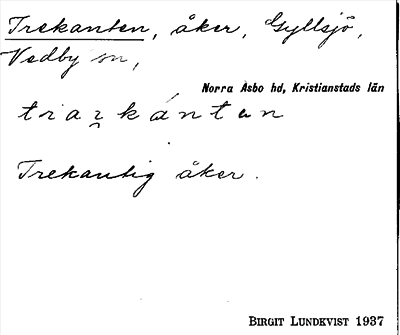 Trekanten, åker, Gyllsjö,
Vedby sn,
Norra Åsbo hd, Kristianstads län
Trekantig åker.
BIRGIT LUNDKVIST 1937